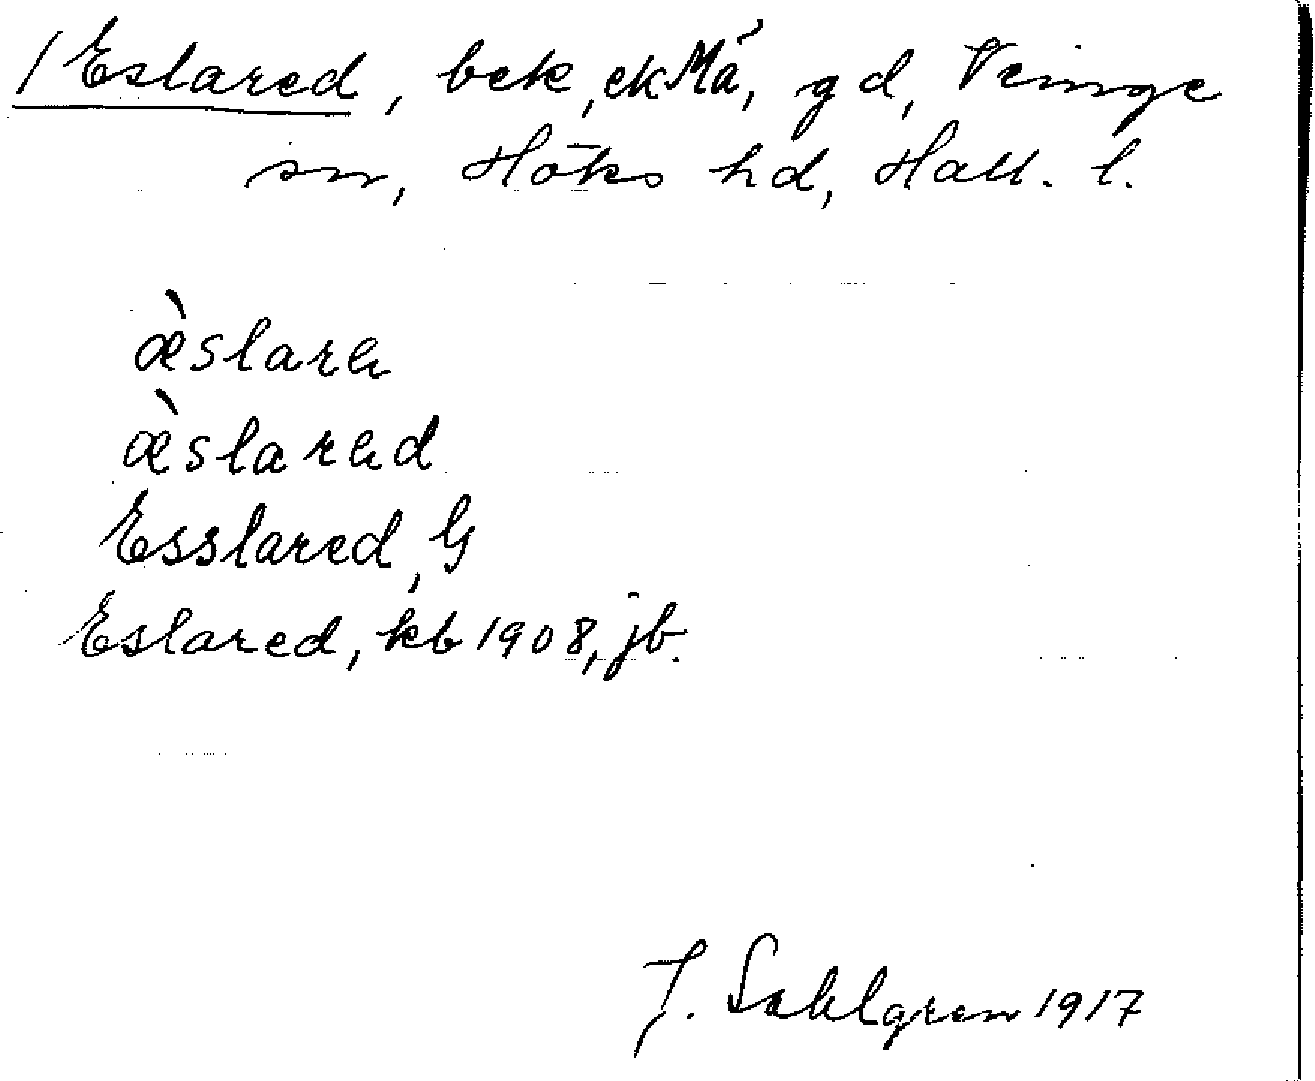 / Eslared, bek, ek Má, gd, Veinge
sn, Höks hd, Hall. l.
æ̀slarɐ
æ̀slarɐd
Esslared, G
Eslared, kb 1908, jb.
J. Sahlgren 1917